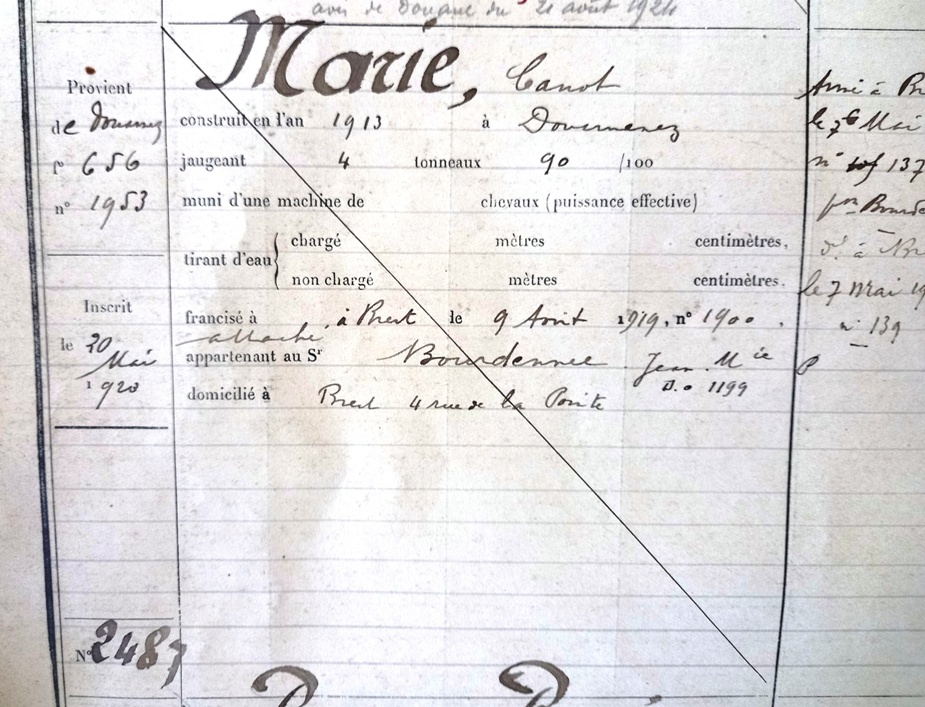 avis de Douane du 21 août 1924
Marie, Canot
Provient
de Douarnez
f° 656
n° 1953
construit en l'an 1913 à Douarnenez
jaugeant 4 tonneaux 90 /100
muni d'une machine de chevaux (puissance effective)
tirant d'eau
chargé mètres centimètres,
non chargé mètres centimètres.
Inscrit
le 20
Mai
1920
francisé à , à Brest le 9 Août 1919, n° 1900 .
attaché
appartenant au Sr Bourdennec Jean Mie
D.o 1199
domicilié à Brest 4 rue de la Pointe
N° 2487
Armé à Br
le 7 Mai
n° 137
pr Bourde
d. à Br
le 7 Mai 19
n° 139